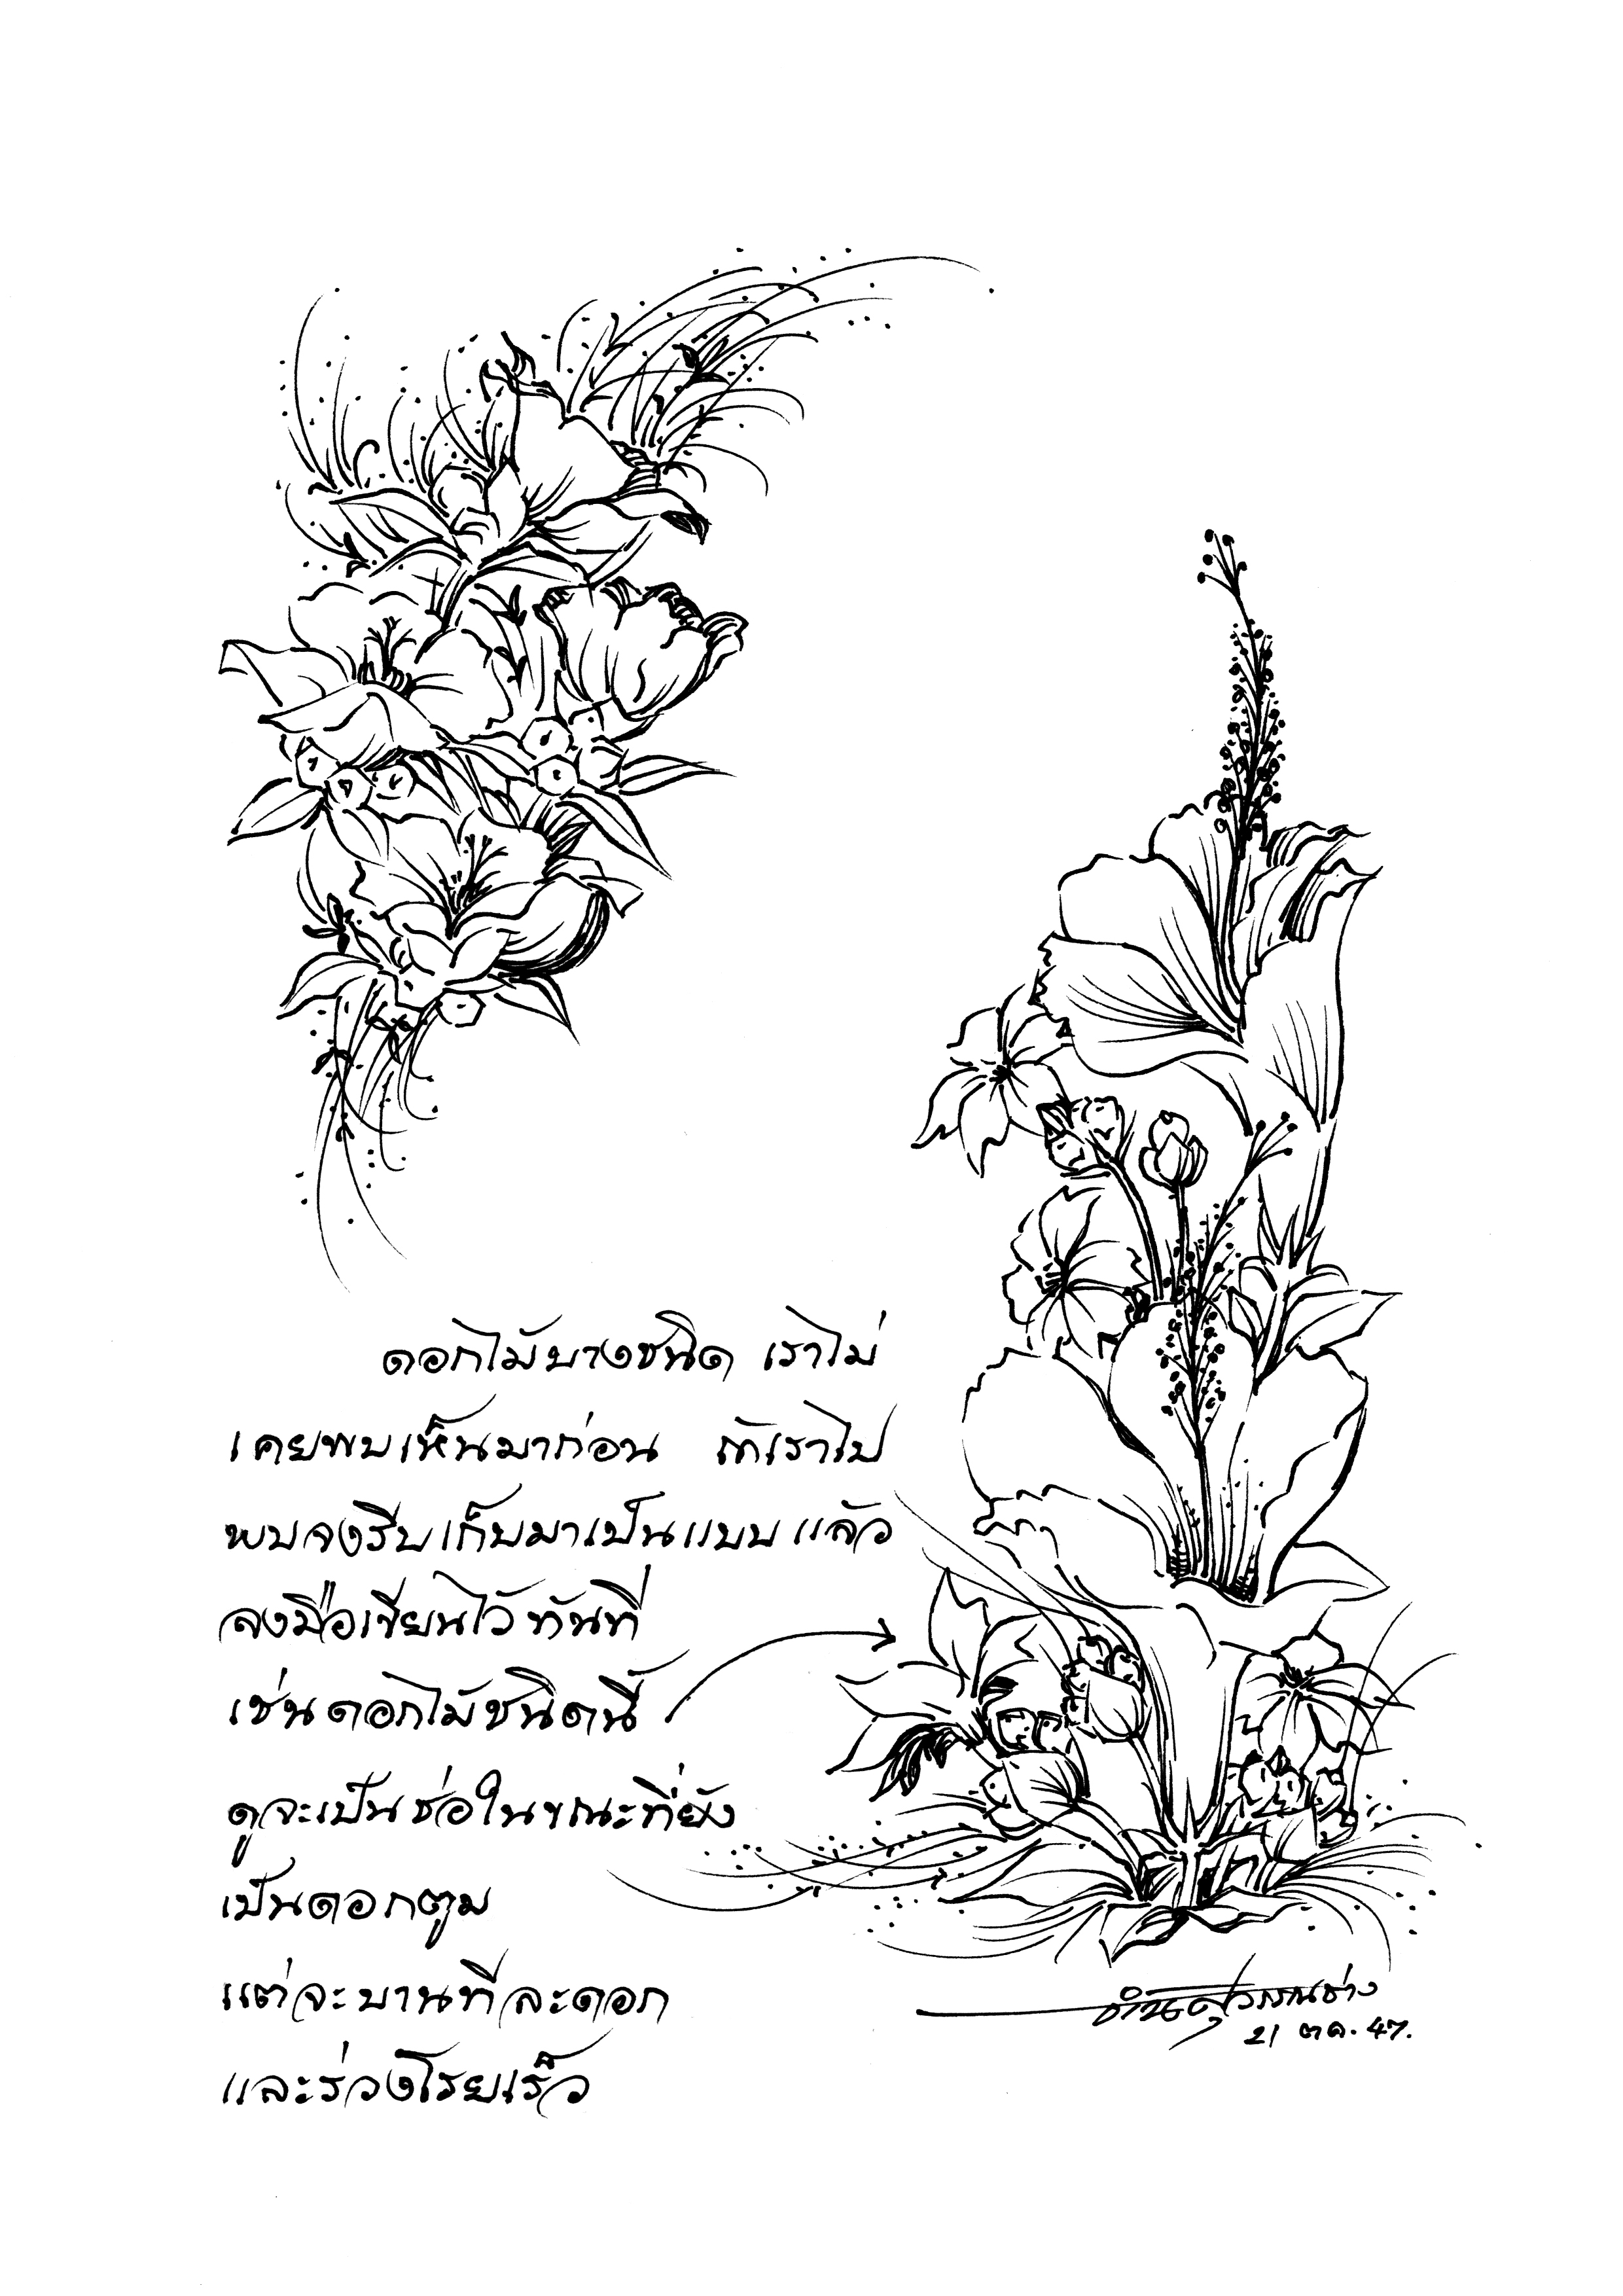 ดอกไม้บางชนิด เราไม่
เคยพบเห็นมาก่อน ถ้าเราไป
พบจงรีบเก็บมาเป็นแบบ แล้ว
ลงมือเขียนไว้ ทันที
เช่นดอกไม้ชนิดนี้
ดูจะเป็นช่อในขณะที่ยัง
เป็นดอกตูม
แต่จะบานทีละดอก
และร่วงโรยเร็ว
21 ตค. 47.